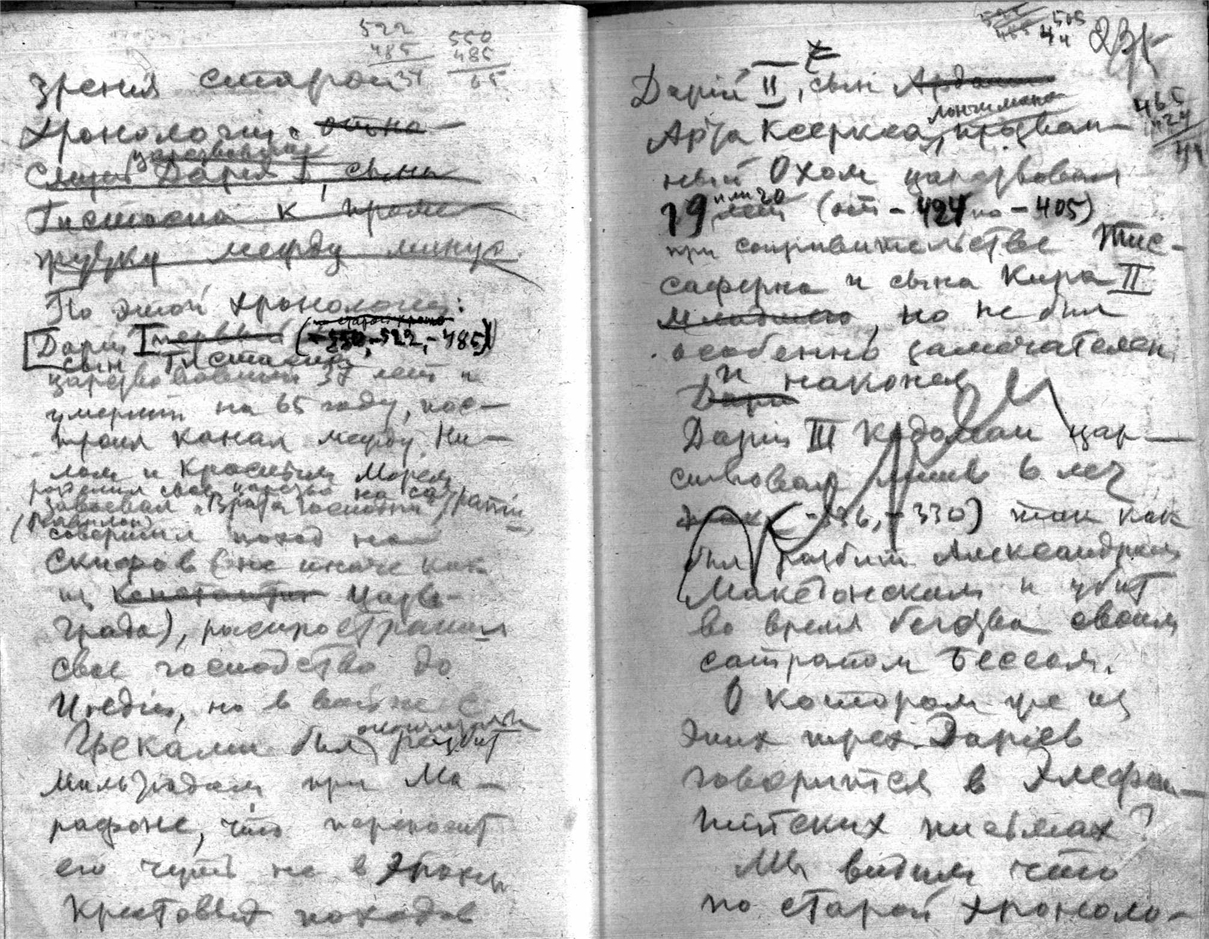 522
485
37
550
485
65
зрения старой
Хронологіи.
царствования
Дарія I, сына
Гистаспа к проме
жутку между минус
По этой хронологіи:
Дарій I первый (-550, -522, -485)
сын Гистаспа
царствовавшій 37 лет и
умершій на 65 году, пос-
троил канал между Ни-
лом и Красным Морем
разделил свое царство на сатрапіи,
завоевал "Врата Господни"
(Вавилон)
совершил поход на
Скифов (не иначе как
из Константин Царь-
града), распространил
свое господство до
Индіи, но в войне с
Греками был разбит
Мильтіадом при Ма-
рафоне, что переносит
его чуть не в Эпоху
Крестовых походов
505
44
235
465
424
41
Дарій II, сын
Лонгимана
Арта Ксеркса, прозван-
ный Охом царствовал
19 или 20 лет (от -424 по -405)
при соправительстве Тис-
саферна и сына Кира II
Младшего, но не был
особенно замечателен
и наконец
Дарій III Кодоман цар-
ствовал лишь 6 лет
-336, -330) так как
был разбит Александром
Македонским и убит
во время бегства своим
сатрапом Бессом.
О котором же из
этих трех Даріев
говорится в Элефан-
тійских письмах?
Мы видим что
по старой хроноло-